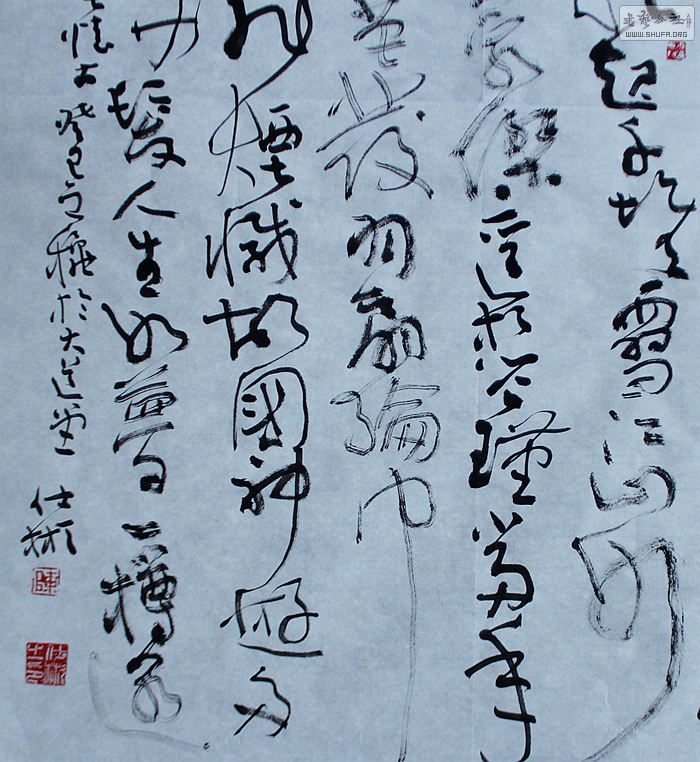 起千堆雪江山如
豪傑遥想公瑾當年
英發羽扇綸巾
飛煙滅故國神遊多
髮人生如夢一樽還
懷古癸巳之秋於大
仕彬
陳
WWW.SHUFA.ORG